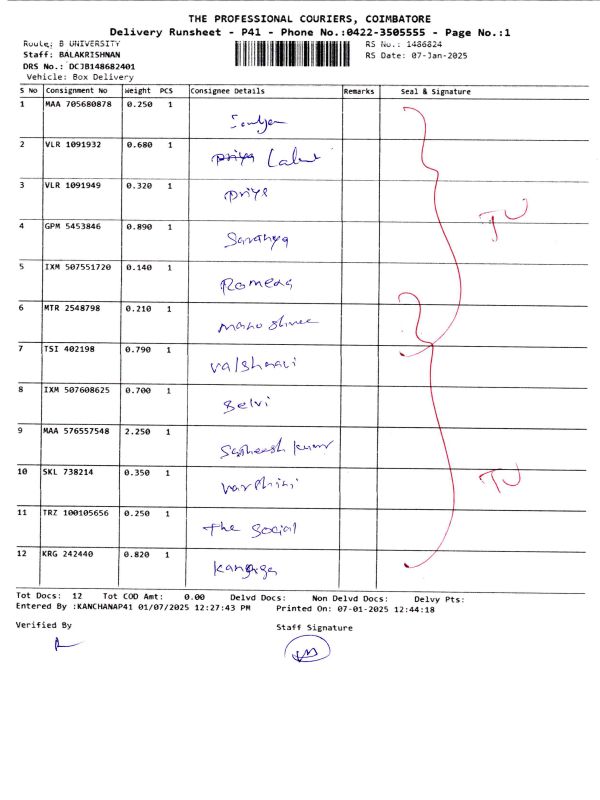 THE PROFESSIONAL COURIERS, COIMBATORE
Delivery Runsheet - P41 - Phone No.:0422-3505555 - Page No.:1
Route: B UNIVERSITY RS No.: 1486824
Staff: BALAKRISHNAN RS Date: 07-Jan-2025
DRS No.: DCJB148682401
Vehicle: Box Delivery
S No Consignment No Weight PCS Consignee Details Remarks Seal & Signature
1 MAA 705680878 0.250 1
2 VLR 1091932 0.680 1
priya
3 VLR 1091949 0.320 1
Priya
4 GPM 5453846 0.890 1
Saranya
TU
5 IXM 507551720 0.140 1
Romeas
6 MTR 2548798 0.210 1
Mano Shree
7 TSI 402198 0.790 1
Valshnavi
8 IXM 507608625 0.700 1
Selvi
9 MAA 576557548 2.250 1
Satheesh kumar
10 SKL 738214 0.350 1
Varshini
TU
11 TRZ 100105656 0.250 1
the Social
12 KRG 242440 0.820 1
Tot Docs: 12 Tot COD Amt: 0.00 Delvd Docs: Non Delvd Docs: Delvy Pts:
Entered By :KANCHANAP41 01/07/2025 12:27:43 PM Printed On: 07-01-2025 12:44:18
Verified By Staff Signature